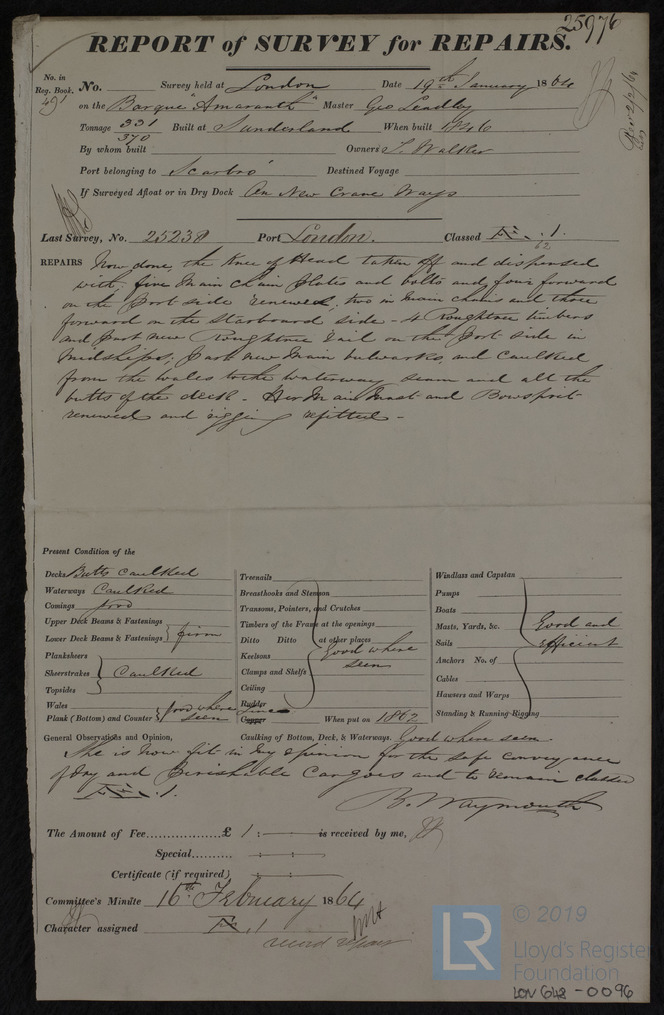 25976
REPORT of SURVEY for REPAIRS.
No. in Reg. Book.
491
No. Survey held at London Date 19th January 1864
on the Barque "Amaranth" Master Geo Leadley
Tonnage 331 Built at Sunderland When built 1846
370
By whom built Owners S. Walker
Port belonging to Scarbro' Destined Voyage
If Surveyed Afloat or in Dry Dock On New Crane Ways
Last Survey, No. 25238 Port London. Classed Æ.1.
62
REPAIRS Now done, the Knee of Head taken off and dispensed
with, five Main Chain plates and bolts and four forward
on the Port side renewed, two in main chains and three
forward on the Starboard side - 4 Roughtree timbers
and part new Roughtree rail on the Port side in
Midships, part new Main bulwarks, and Caulked
from the wales to the waterway seam and all the
butts of the deck. Her Main Mast and Bowsprit
renewed and rigging refitted -
Present Condition of the
Decks Butts Caulked
Waterways Caulked
Comings good
Upper Deck Beams & Fastenings
Lower Deck Beams & Fastenings firm
Planksheers
Sheerstrakes Caulked
Topsides
Wales
Plank (Bottom) and Counter good where seen
Treenails
Breasthooks and Stemson
Transoms, Pointers, and Crutches
Timbers of the Frame at the openings
Ditto Ditto at other places
Keelsons good where seen
Clamps and Shelfs
Ceiling
Rudder
Copper Zinc When put on 1862
Windlass and Capstan
Pumps
Boats
Masts, Yards, &c. Good and
Sails efficient
Anchors No. of
Cables
Hawsers and Warps
Standing & Running Rigging
General Observations and Opinion, Caulking of Bottom, Deck, & Waterways. Good where seen
She is now fit in my opinion for the safe conveyance
of dry and Perishable Cargoes and to remain classed
Æ.1.
R. Waymouth
The Amount of Fee £ 1 : is received by me,
Special
Certificate (if required)
Committee's Minute 16th February 1864
Character assigned Æ.1
record repairs
LR
© 2019
Lloyd's Register
Foundation
LON 648-0096